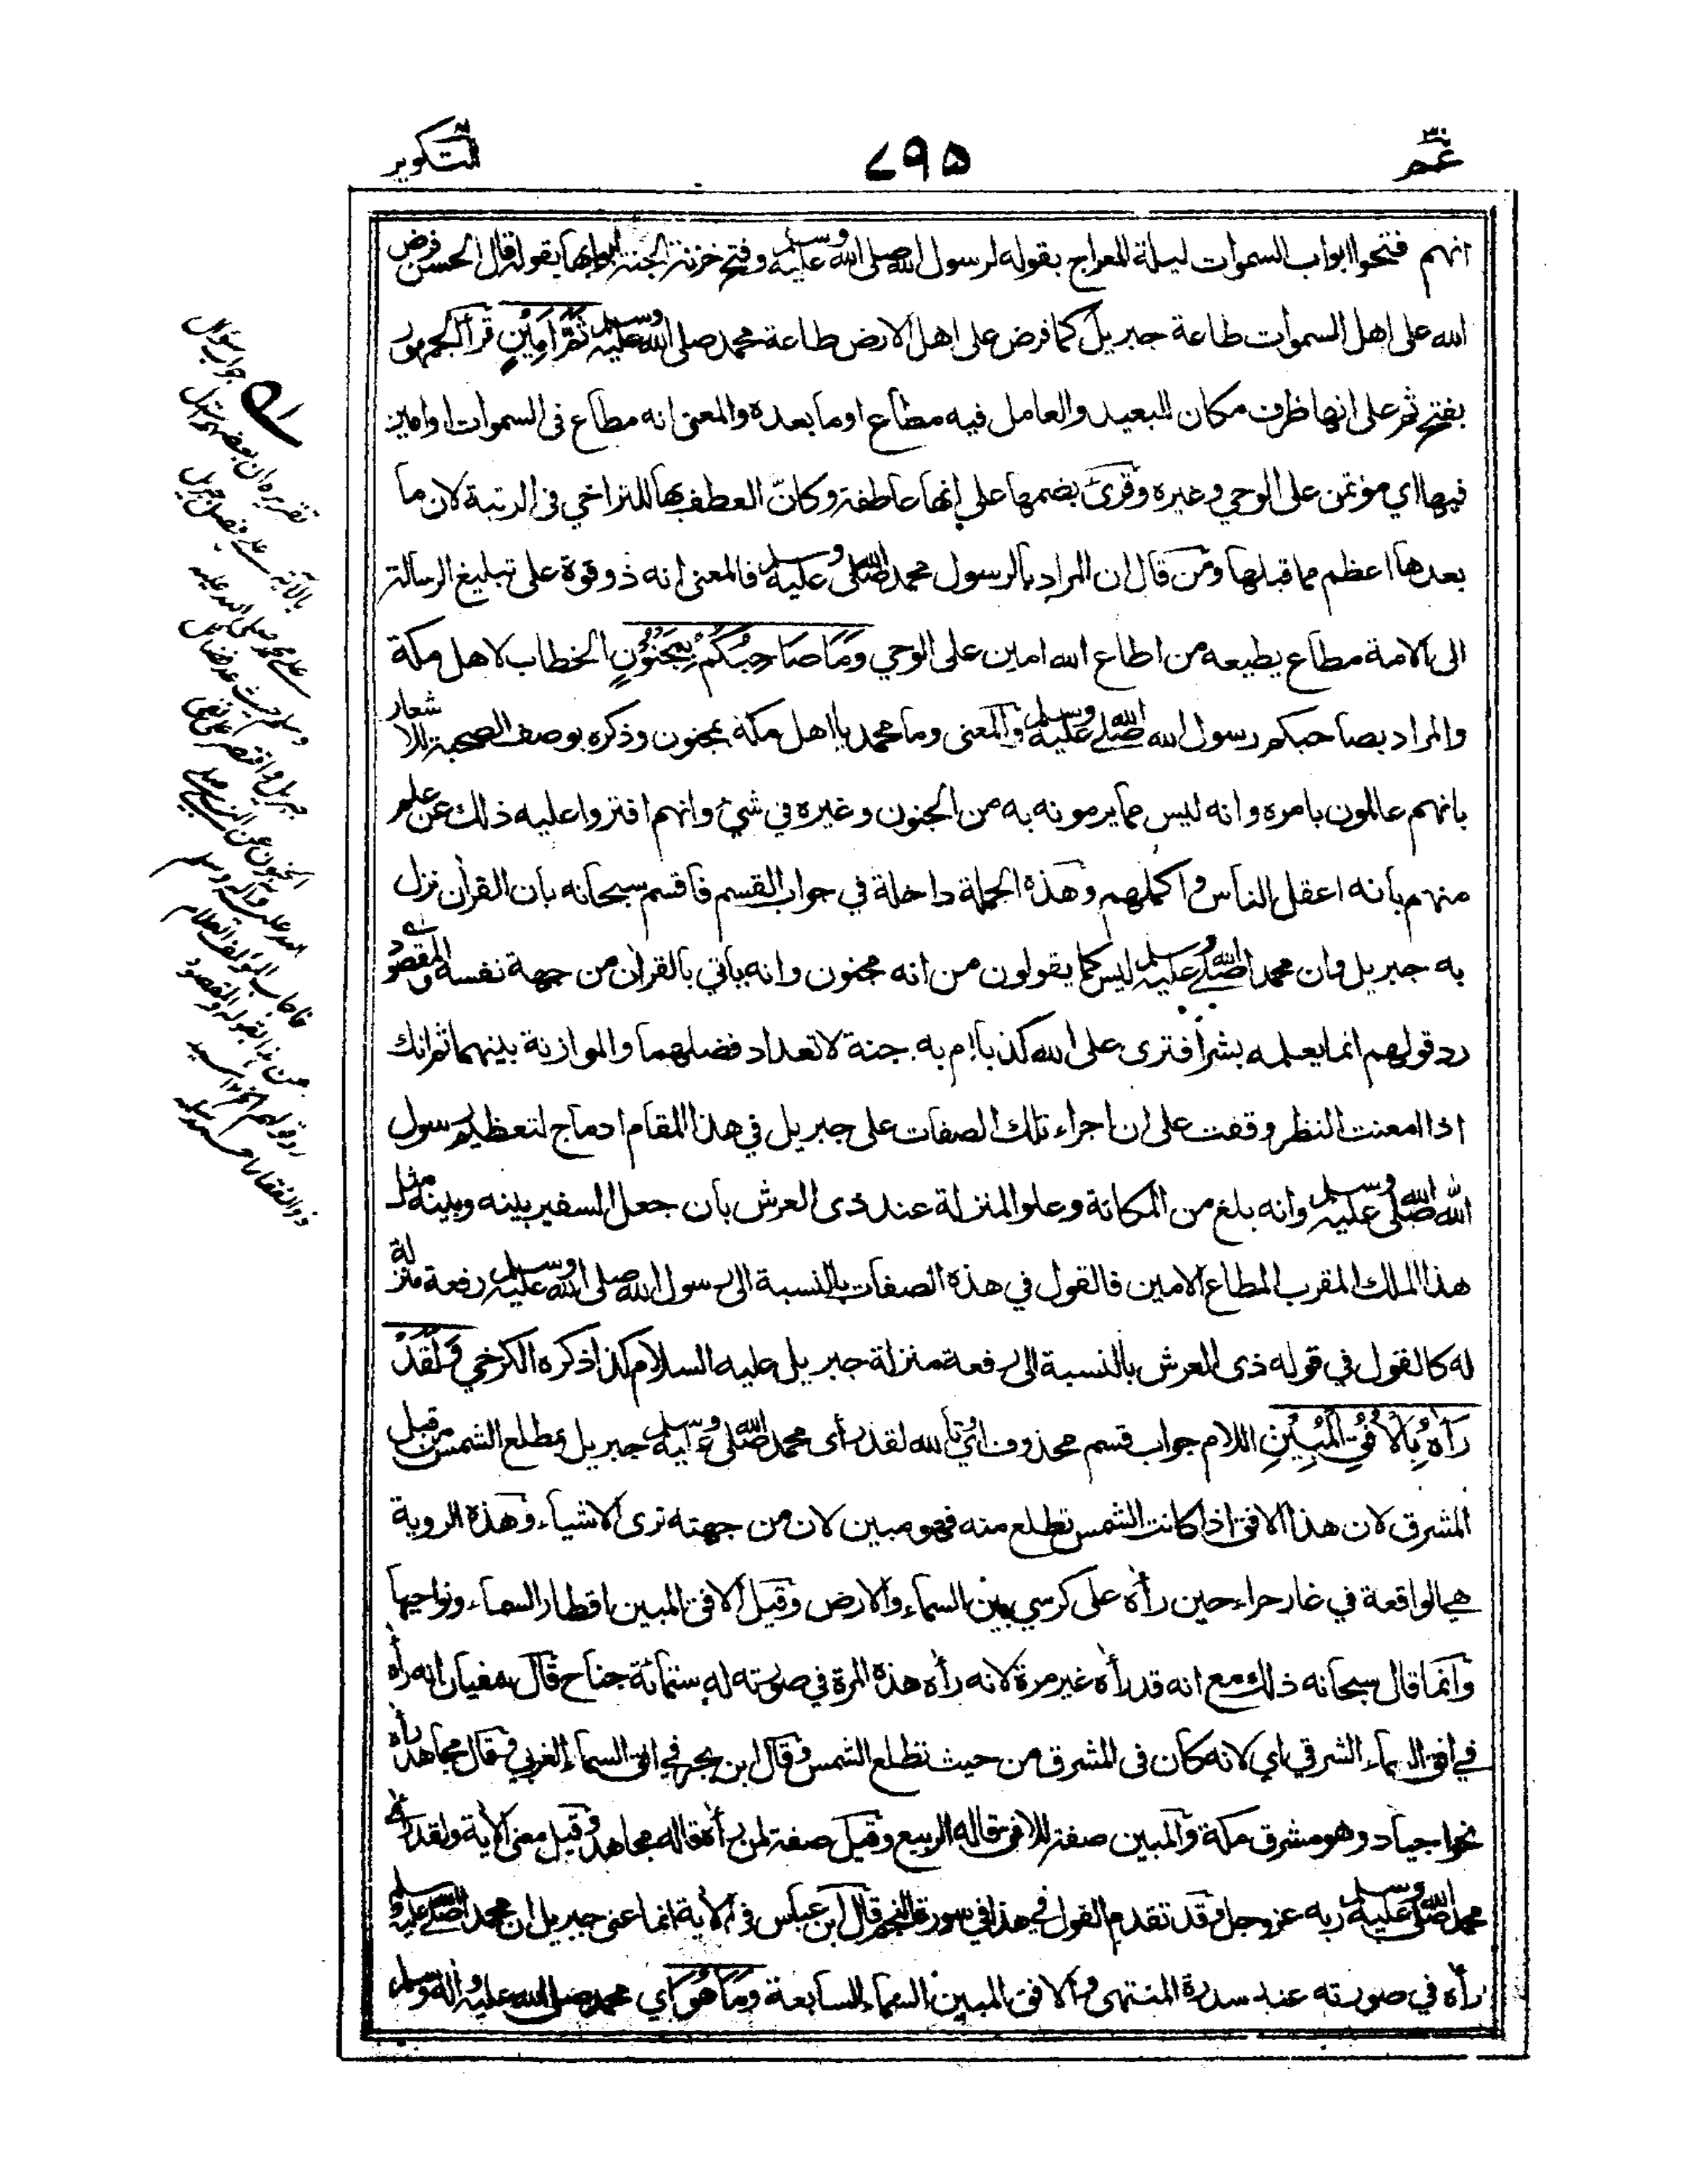 عم ٣٠
٤٩٥
التكوير
انهم فتحوا ابواب السموات ليلة المعراج بقوله لرسول الله صلى الله عليه وسلم وفتح خزنة الجنة ابوابها بقوله قال الحسن فرض
الله على اهل السموات طاعة جبريل كما فرض على اهل الارض طاعة محمد صلى الله عليه وسلم ثَمَّ اَمِيْنٍ قرأ الجمهور
بفتح ثم على انها ظرف مكان للبعيد والعامل فيه مطاع او ما بعده والمعنى انه مطاع فى السموات او امين
فيها اي مؤتمن على الوحي وغيره وقرئ بضمها على انها عاطفة وكان العطف بها للتراخي فى الرتبة لان ما
بعدها اعظم مما قبلها ومن قال ان المراد بالرسول محمد صلى الله عليه وسلم فالمعنى انه ذو قوة على تبليغ الرسالة
الى الامة مطاع يطيعه من اطاع الله امين على الوحي وَمَا صَاحِبُكُمْ بِمَجْنُوْنٍ الخطاب لاهل مكة
والمراد بصاحبكم رسول الله صلى الله عليه وسلم والمعنى وما محمد يا اهل مكة بمجنون وذكره بوصف الصحبة للاشعار
بانهم عالمون بامره وانه ليس مما يرمونه به من الجنون وغيره في شيئ وانهم افتروا عليه ذلك عن علم
منهم بأنه اعقل الناس واكملهم وهذه الجملة داخلة في جواب القسم فاقسم سبحانه بان القرآن نزل
به جبريل وان محمدا صلى الله عليه وسلم ليس كما يقولون من انه مجنون وانه يأتي بالقرآن من جهة نفسه والمقصود
رد قولهم انما يعلمه بشر افترى على الله كذبا ام به جنة لا تعداد فضلهما والموازنة بينهما ثم انك
اذا امعنت النظر وقفت على ان اجراء تلك الصفات على جبريل في هذا المقام ادماج لتعظيم رسول
الله صلى الله عليه وسلم وانه بلغ من المكانة وعلو المنزلة عند ذى العرش بان جعل السفير بينه وبينه مثل
هذا الملك المقرب المطاع الامين فالقول في هذه الصفات بالنسبة الى رسول الله صلى الله عليه وسلم رفعة منزلة
له كالقول في قوله ذى العرش بالنسبة الى رفعة منزلة جبريل عليه السلام كذا ذكره الكرخي وَلَقَدْ
رَاٰهُ بِالْاُفُقِ الْمُبِيْنِ اللام جواب قسم محذوف اي تالله لقد رأى محمد صلى الله عليه وسلم جبريل بمطلع الشمس من قبل
المشرق لان هذا الافق اذا كانت الشمس تطلع منه فهو مبين لان من جهته ترى الاشياء وهذه الروية
هي الواقعة في غار حراء حين رأه على كرسي بين السماء والارض وقيل الافق المبين اقطار السماء ونواحيها
وانما قال سبحانه ذلك مع انه قد رأه غير مرة لانه رأه هذه المرة في صورته له ستمائة جناح قال سفيان انه رأه
في افق السماء الشرقي اي لانه كان فى المشرق من حيث تطلع الشمس وقال ابن بحر في افق السماء الغربي وقال مجاهد رأه
نحو اجياد وهو مشرق مكة والمبين صفة للافق قاله الربيع وقيل صفة لمن رأه قاله مجاهد وقيل معنى الاية ولقد رأى
محمد صلى الله عليه وسلم ربه عز وجل وقد تقدم القول في هذا في سورة النجم قال ابن عباس فى الاية انما عنى جبريل ان محمدا صلى الله عليه وسلم
رأه في صورته عند سدرة المنتهى والافق المبين السماء السابعة وَمَا هُوَ اي محمد صلى الله عليه واله وسلم
جواب سوال
تقريره ان بعضهم استدل
بالآية على فضل جبريل
على محمد صلى الله عليه
وسلم حيث عد فضائل
جبريل واقتصر على نفى
الجنون عن النبي صلى
الله عليه واله وسلم
فاجاب المؤلف العلام
عن هذا بقوله والمقصود
رد قولهم الخ
ذو الفقار احمد